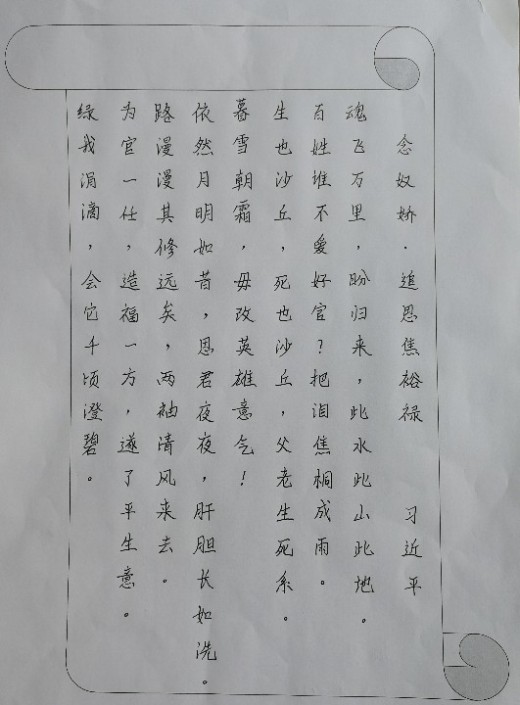 念奴娇·追思焦裕禄 习近平
魂飞万里，盼归来，此水此山此地。
百姓谁不爱好官？把泪焦桐成雨。
生也沙丘，死也沙丘，父老生死系。
暮雪朝霜，毋改英雄意气！
依然月明如昔，思君夜夜，肝胆长如洗。
路漫漫其修远矣，两袖清风来去。
为官一任，造福一方，遂了平生意。
绿我涓滴，会它千顷澄碧。